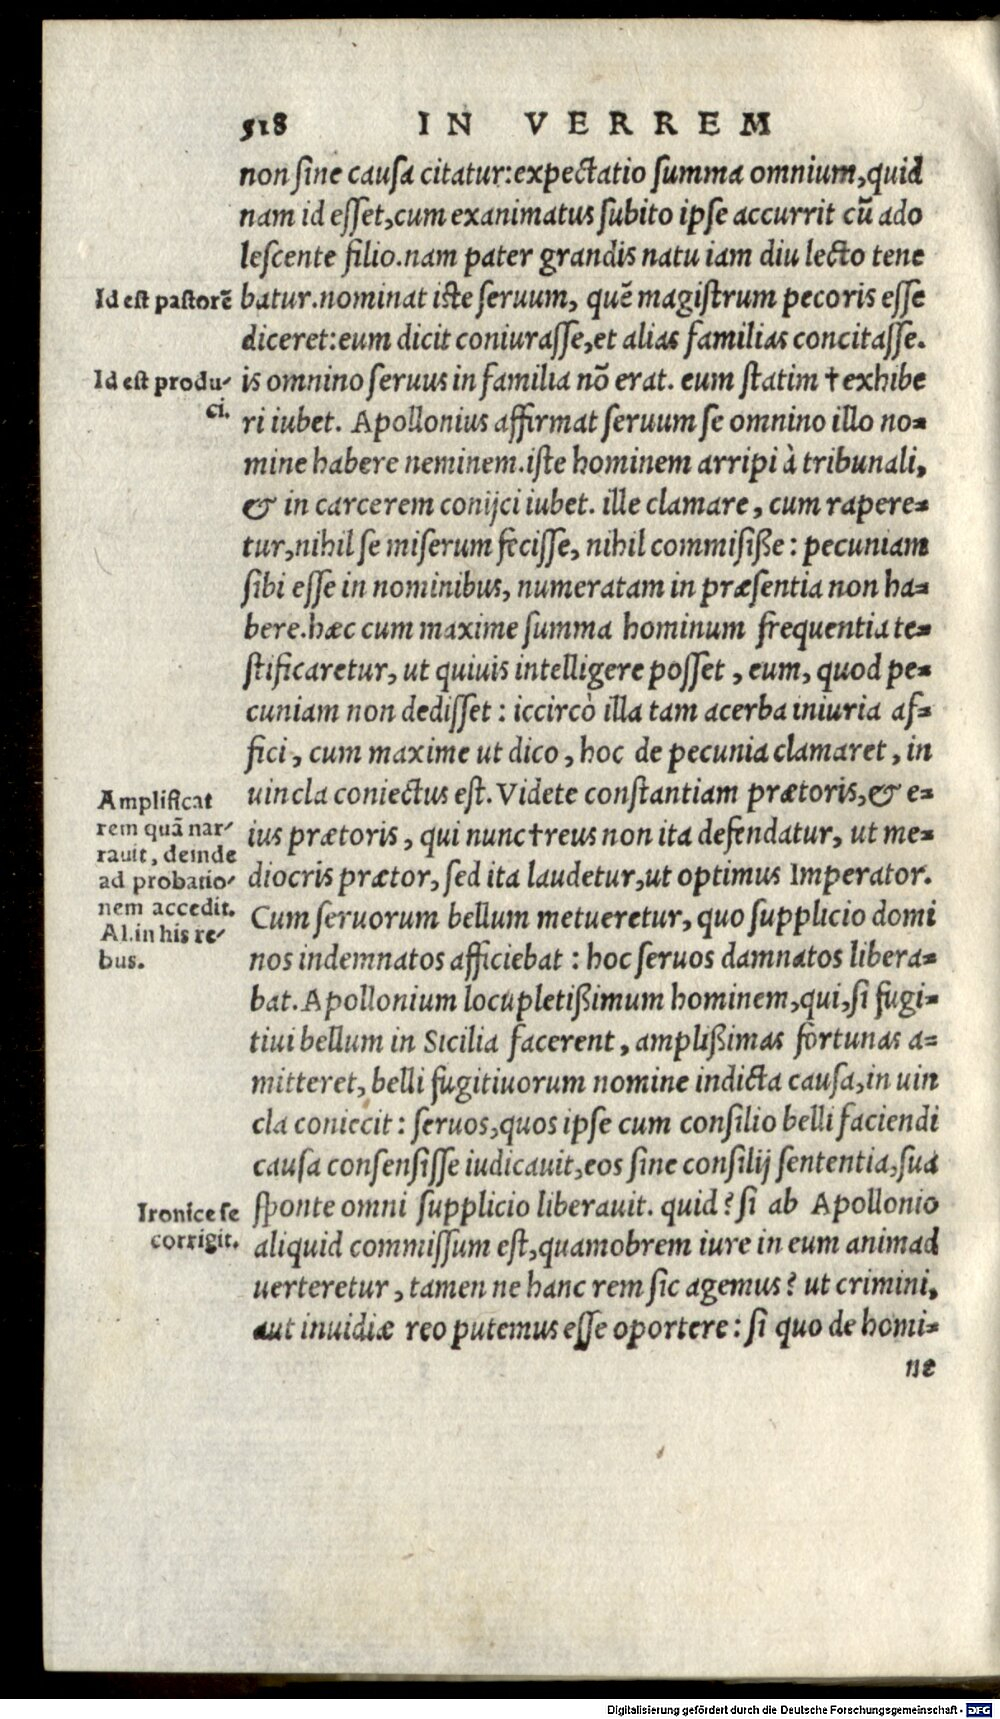 518 IN VERREM
non sine causa citatur: expectatio summa omnium, quid
nam id esset, cum exanimatus subito ipse accurrit cũ ado
lescente filio. nam pater grandis natu iam diu lecto tene
Id est pastorẽ
batur. nominat iste seruum, quẽ magistrum pecoris esse
diceret: eum dicit coniurasse, et alias familias concitasse.
Id est produ-
ci.
is omnino seruus in familia nõ erat. eum statim † exhibe
ri iubet. Apollonius affirmat seruum se omnino illo no=
mine habere neminem. iste hominem arripi à tribunali,
& in carcerem conijci iubet. ille clamare, cum rapere=
tur, nihil se miserum fecisse, nihil commisiße: pecuniam
sibi esse in nominibus, numeratam in præsentia non ha=
bere. hæc cum maxime summa hominum frequentia te=
stificaretur, ut quiuis intelligere posset, eum, quod pe=
cuniam non dedisset: iccircò illa tam acerba iniuria af=
fici, cum maxime ut dico, hoc de pecunia clamaret, in
Amplificat
rem quã nar-
rauit, deinde
ad probatio-
nem accedit.
Al. in his re-
bus.
uincla coniectus est. Videte constantiam prætoris, & e=
ius prætoris, qui nunc † reus non ita defendatur, ut me=
diocris prætor, sed ita laudetur, ut optimus Imperator.
Cum seruorum bellum metueretur, quo supplicio domi
nos indemnatos afficiebat: hoc seruos damnatos libera=
bat. Apollonium locupletißimum hominem, qui, si fugi=
tiui bellum in Sicilia facerent, amplißimas fortunas a=
mitteret, belli fugitiuorum nomine indicta causa, in uin
cla coniecit: seruos, quos ipse cum consilio belli faciendi
causa consensisse iudicauit, eos sine consilij sententia, sua
Ironice se
corrigit.
sponte omni supplicio liberauit. quid? si ab Apollonio
aliquid commissum est, quamobrem iure in eum animad
uerteretur, tamen ne hanc rem sic agemus? ut crimini,
aut inuidiæ reo putemus esse oportere: si quo de homi=
ne
Digitalisierung gefördert durch die Deutsche Forschungsgemeinschaft - DFG